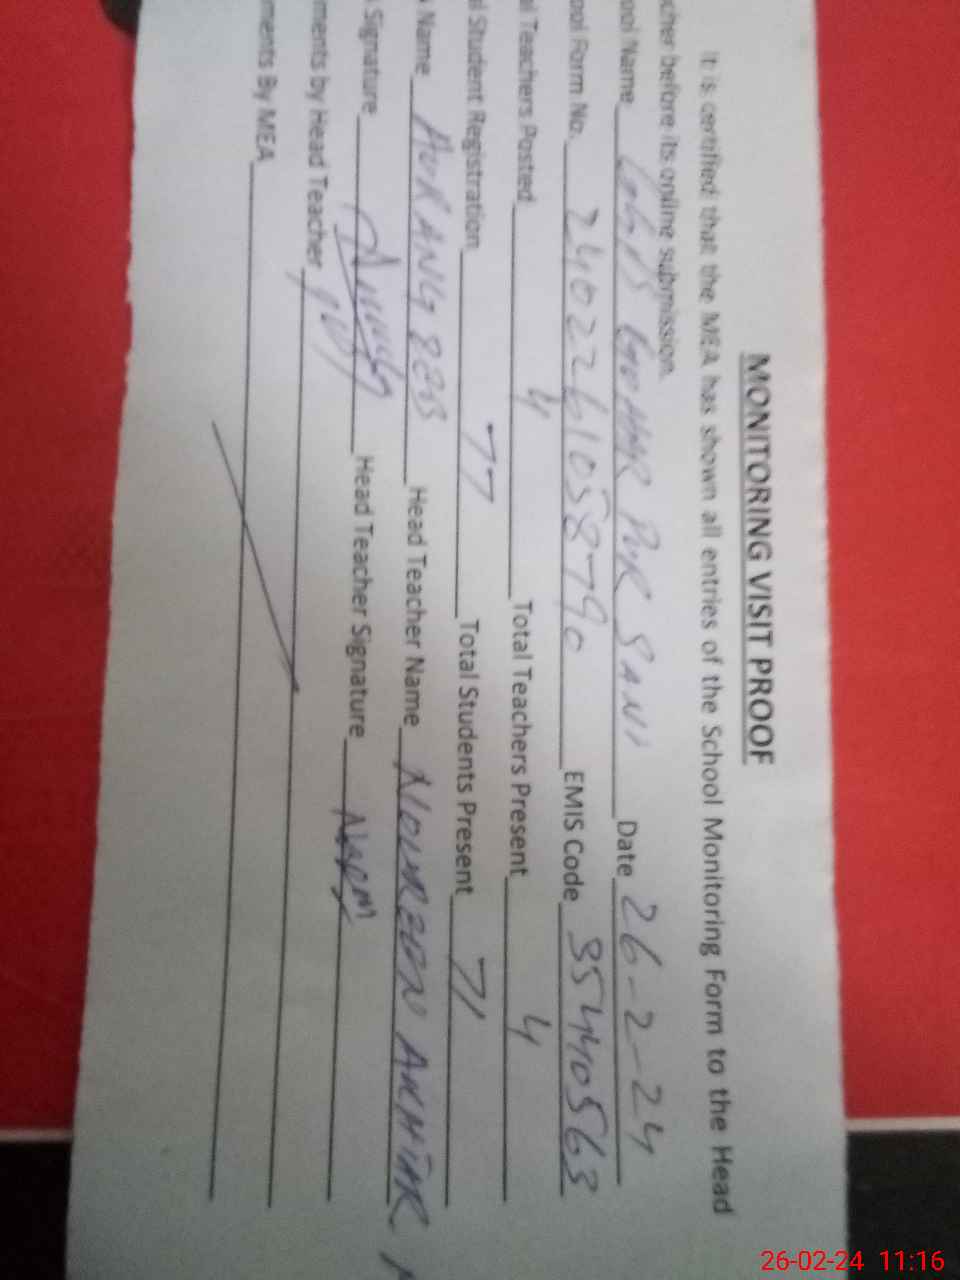 MONITORING VISIT PROOF
It is certified that the MEA has shown all entries of the School Monitoring Form to the Head
cher before its online submission.
ool Name GGPS GOHAR PUR SANI Date 26-2-24
ool Form No. 2402261058790 EMIS Code 35440563
l Teachers Posted 4 Total Teachers Present 4
l Student Registration 77 Total Students Present 71
Name AURANGZEB Head Teacher Name NOUREEN AKHTAR
Signature Head Teacher Signature
ments by Head Teacher
ments By MEA
26-02-24 11:16